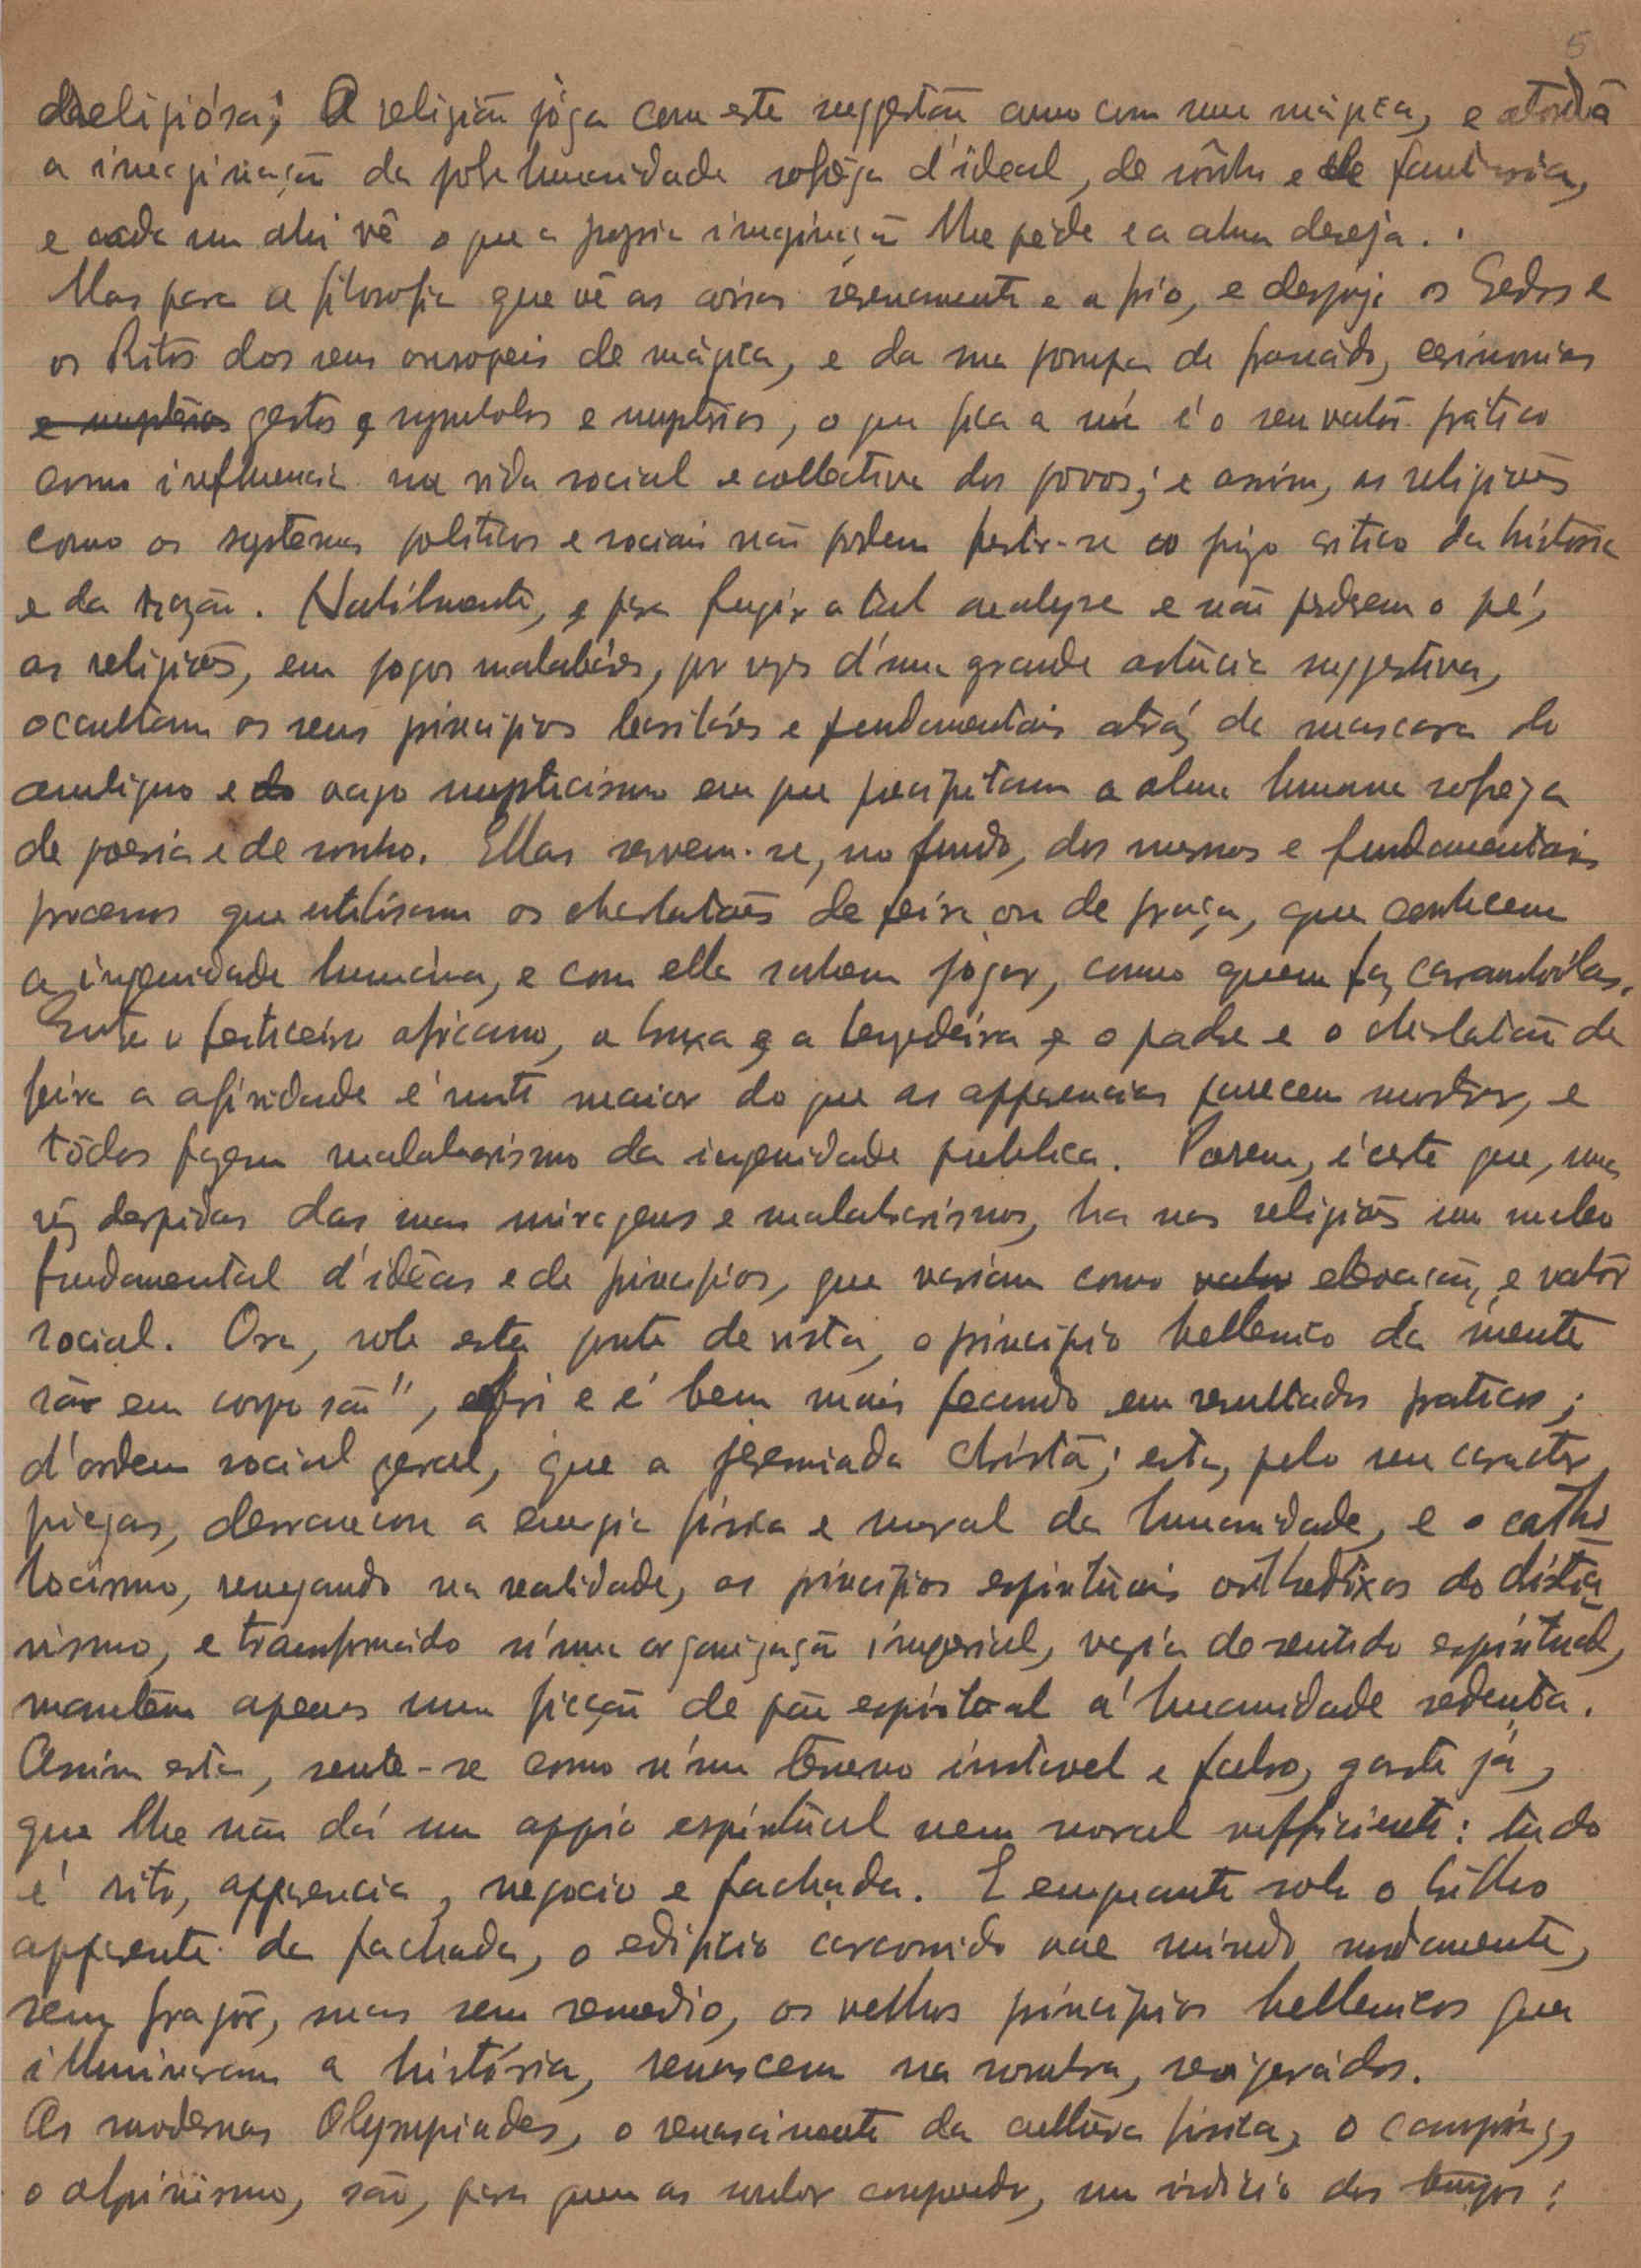 5
religiósa; A religião jóga com esta suggestão como com uma mágica, e atordôa
a imaginação da pobre humanidade sofrêga d'ideal, de sônho e de fantasia,
e cada um ahi vê o que a propria imaginação lhe péde e a alma deseja. .
Mas para a filosofia que vê as coisas serenamente e a frio, e despoja os Credos e
os Ritos dos seus ouropeis de mágica, e da sua pompa de fachada, cerimonias
e mysterios gestos e symbolos e mysterios, o que fica a nú é o seu valôr prático
como influencia na vida social e collectiva dos póvos; e assim, as religiões
como os systemas politicos e sociais não pódem furtar-se ao juizo critico da história
e da razão. Habilmente, e para fugir a tal analyse e não perderem o pé,
as religiões, em jogos malabáres, por vezes d'uma grande astúcia suggestiva,
occultam os seus principios basiláres e fundamentais atráz da mascara do
ambiguo e do vago mysticismo em que precipitam a alma humana sofrega
de poesia e de sonho. Ellas servem-se, no fundo, dos mesmos e fundamentais
processos que utilisam os charlatães de feira ou de praça, que conhecem
a ingenuidade humana, e com ella sabem jogar, como quem faz carambólas.
Entre o feiticeiro africano, a bruxa e a benzedeira e o padre e o charlatão de
feira a afinidade é muito maior do que as apparencias parecem mostrar, e
tôdos fazem malabarismo da ingenuidade publica. Porem, é certo que, uma
vêz despidas das suas miragens e malabarismos, ha nas religiões um nucleo
fundamental d'idêas e de principios, que variam como valor elevação, e valôr
social. Ora, sob este ponto de vista, o principio hellenico da "mente
sã em corpo são", foi e é bem mais fecundo em resultados praticos,
d'ordem social geral, que a jeremiada christã; esta, pelo seu caracter
piegas, derrancou a energia física e moral da humanidade, e o catho
locismo, renegando na realidade, os principios espirituais orthodoxos do christia
nismo, e transformado n'uma organização imperial, vazia de sentido espiritual,
mantêm apenas uma ficção de pão espiritual á humanidade sedenta.
Assim esta, sente-se como n'um terreno instavel e falso, gasto já,
que lhe não dá um appoio espiritual nem moral sufficiente: tudo
é rito, apparencia, negocio e fachada. E emquanto sob o brilho
apparente da fachada, o edificio carcomido vae ruindo mudamente,
sem fragôr, mas sem remedio, os velhos principios hellenicos que
illuminaram a história, renascem na sombra, revigorádos.
As modernas Olympiades, o renascimento da cultura física, o camping,
o alpinismo, são, para quem as souber comprender, um indicio dos tempos: